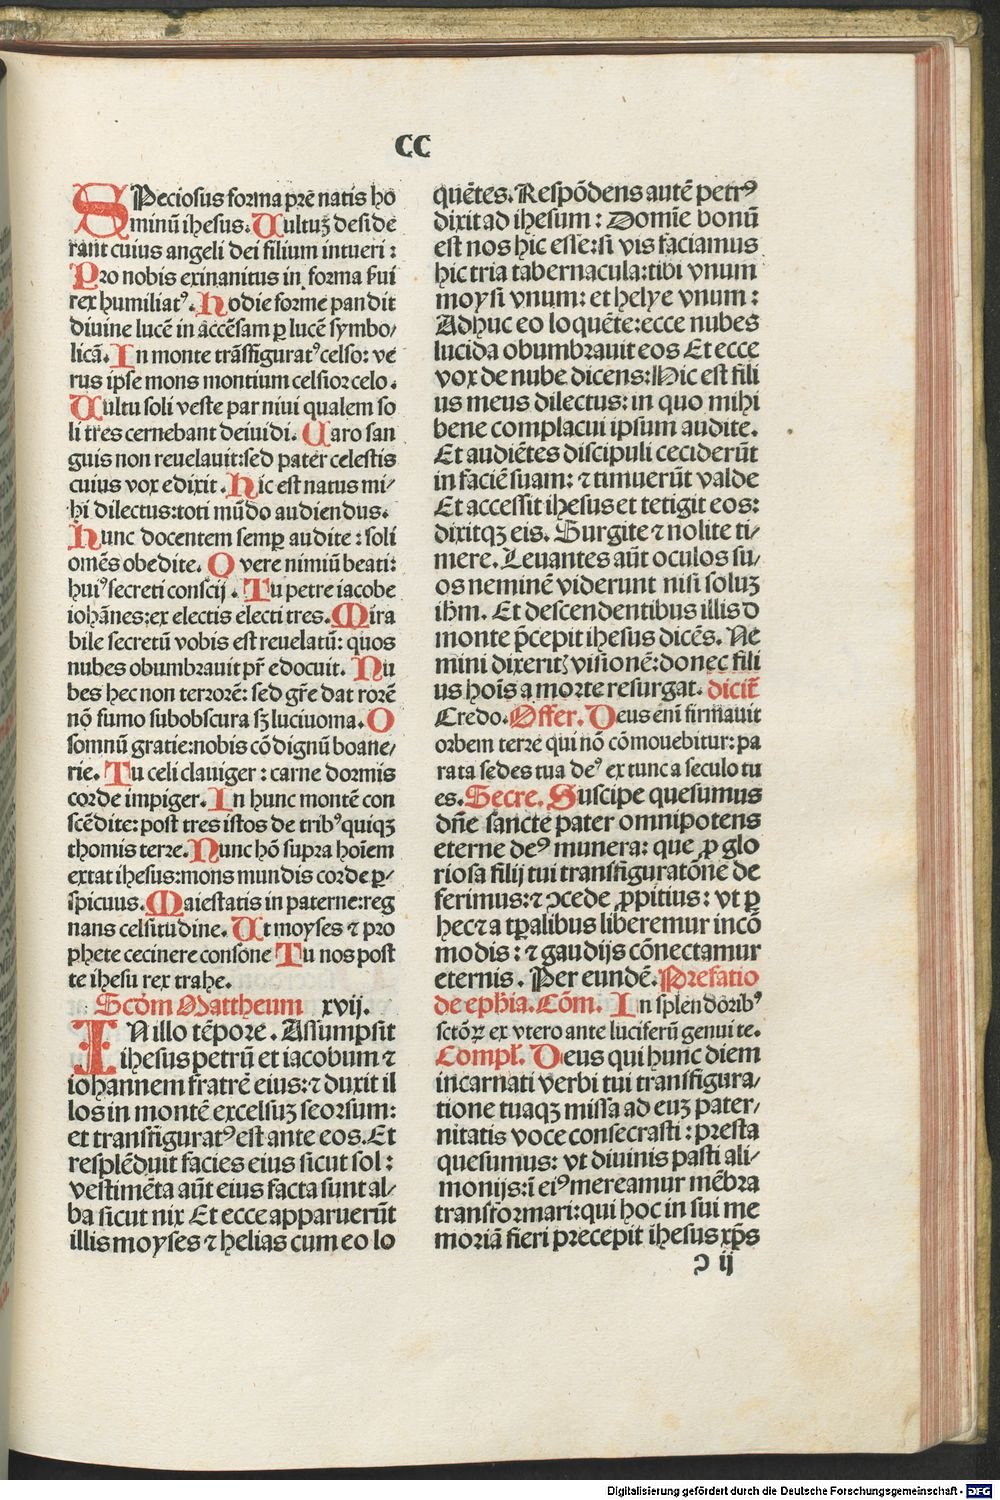 CC
SPeciosus forma pre̅ natis ho
minu̅ ihesus. Vultuʒ deside
rant cuius angeli dei filium intueri :
Pro nobis exinanitus in forma s̅ui
rex humiliatꝰ. Hodie forme pandit
diuine luce̅ in acce̅sam ꝑ luce̅ symbo/
lica̅. In monte tra̅sfiguratꝰ celso: ve
rus ipse mons montium celsior celo.
Vultu soli veste par niui qualem so
li tres cernebant deiuidi. Caro san
guis non reuelauit:sed pater celestis
cuius vox edixit. Hic est natus mi/
hi dilectus:toti mu̅do audiendus.
Hunc docentem semꝑ audite : soli
ome̅s obedite. O vere nimiu̅ beati:
huiꝰ secreti conscij. Tu petre iacobe
ioha̅nes:ex electis electi tres. Mira
bile secretu̅ vobis est reuelatu̅: quos
nubes obumbrauit pr̅ edocuit. Nu
bes hec non terrore̅: sed gr̅e dat rore̅
no̅ fumo subobscura sʒ luciuoma. O
somnu̅ gratie:nobis co̅dignu̅ boane/
rie. Tu celi clauiger : carne dormis
corde impiger. In hunc monte̅ con
sce̅dite: post tres istos de tribꝰ quiqʒ
thomis terre. Nunc ho̅ supra hoi̅em
extat ihesus:mons mundis corde ꝑ/
spicuus. Maiestatis in paterne:reg
nans celsitudine. Vt moyses ⁊ pro
phete cecinere consone Tu nos post
te ihesu rex trahe.
Scd̅m Mattheum xvij.
IN illo te̅pore. Assumpsit
ihesus petru̅ et iacobum ⁊
iohannem fratre̅ eius:⁊ duxit il
los in monte̅ excelsuʒ seorsum:
et transfiguratꝰ est ante eos. Et
resple̅duit facies eius sicut sol :
vestime̅ta au̅t eius facta sunt al/
ba sicut nix Et ecce apparueru̅t
illis moyses ⁊ helias cum eo lo
que̅tes. Respo̅dens aute̅ petrꝰ
dixit ad ihesum : Domi̅e bonu̅
est nos hic esse:si vis faciamus
hic tria tabernacula:tibi vnum
moysi vnum: et helye vnum :
Adhuc eo loque̅te:ecce nubes
lucida obumbrauit eos Et ecce
vox de nube dicens:Hic est fili
us meus dilectus: in quo mihi
bene complacui ipsum audite.
Et audie̅tes discipuli cecideru̅t
in facie̅ suam: ⁊ timueru̅t valde
Et accessit ihesus et tetigit eos:
dixitqʒ eis. Surgite ⁊ nolite ti/
mere. Leuantes au̅t oculos su/
os nemine̅ viderunt nisi soluʒ
ihm̅. Et descendentibus illis d
monte p̅cepit ihesus dice̅s. Ne
mini dixeritʒ visione̅:donec fili
us hoi̅s a morte resurgat. dicit̅
Credo. Offer. Deus eni̅ firmauit
orbem terre qui no̅ co̅mouebitur: pa
rata sedes tua deꝰ ex tunc a seculo tu
es. Secre. Suscipe quesumus
dn̅e sancte pater omnipotens
eterne deꝰ munera: que ꝓ glo
riosa filij tui transfigurato̅ne de
ferimus:⁊ ↄcede ꝓpitius : vt ꝑ
hec ⁊ a tꝑalibus liberemur inco̅
modis : ⁊ gaudijs co̅nectamur
eternis. Per eunde̅. Prefatio
de eph̅ia. Co̅m. In splendoribꝰ
scto̅ꝝ ex vtero ante luciferu̅ genui te.
Compl̅. Deus qui hunc diem
incarnati verbi tui transfigura/
tione tuaqʒ missa ad euʒ pater/
nitatis voce consecrasti : presta
quesumus: vt diuinis pasti ali/
monijs:i̅ eiꝰ mereamur me̅bra
transformari:qui hoc in sui me
moria̅ fieri precepit ihesus xp̅s
ↄ ij
Digitalisierung gefördert durch die Deutsche Forschungsgemeinschaft - DFG